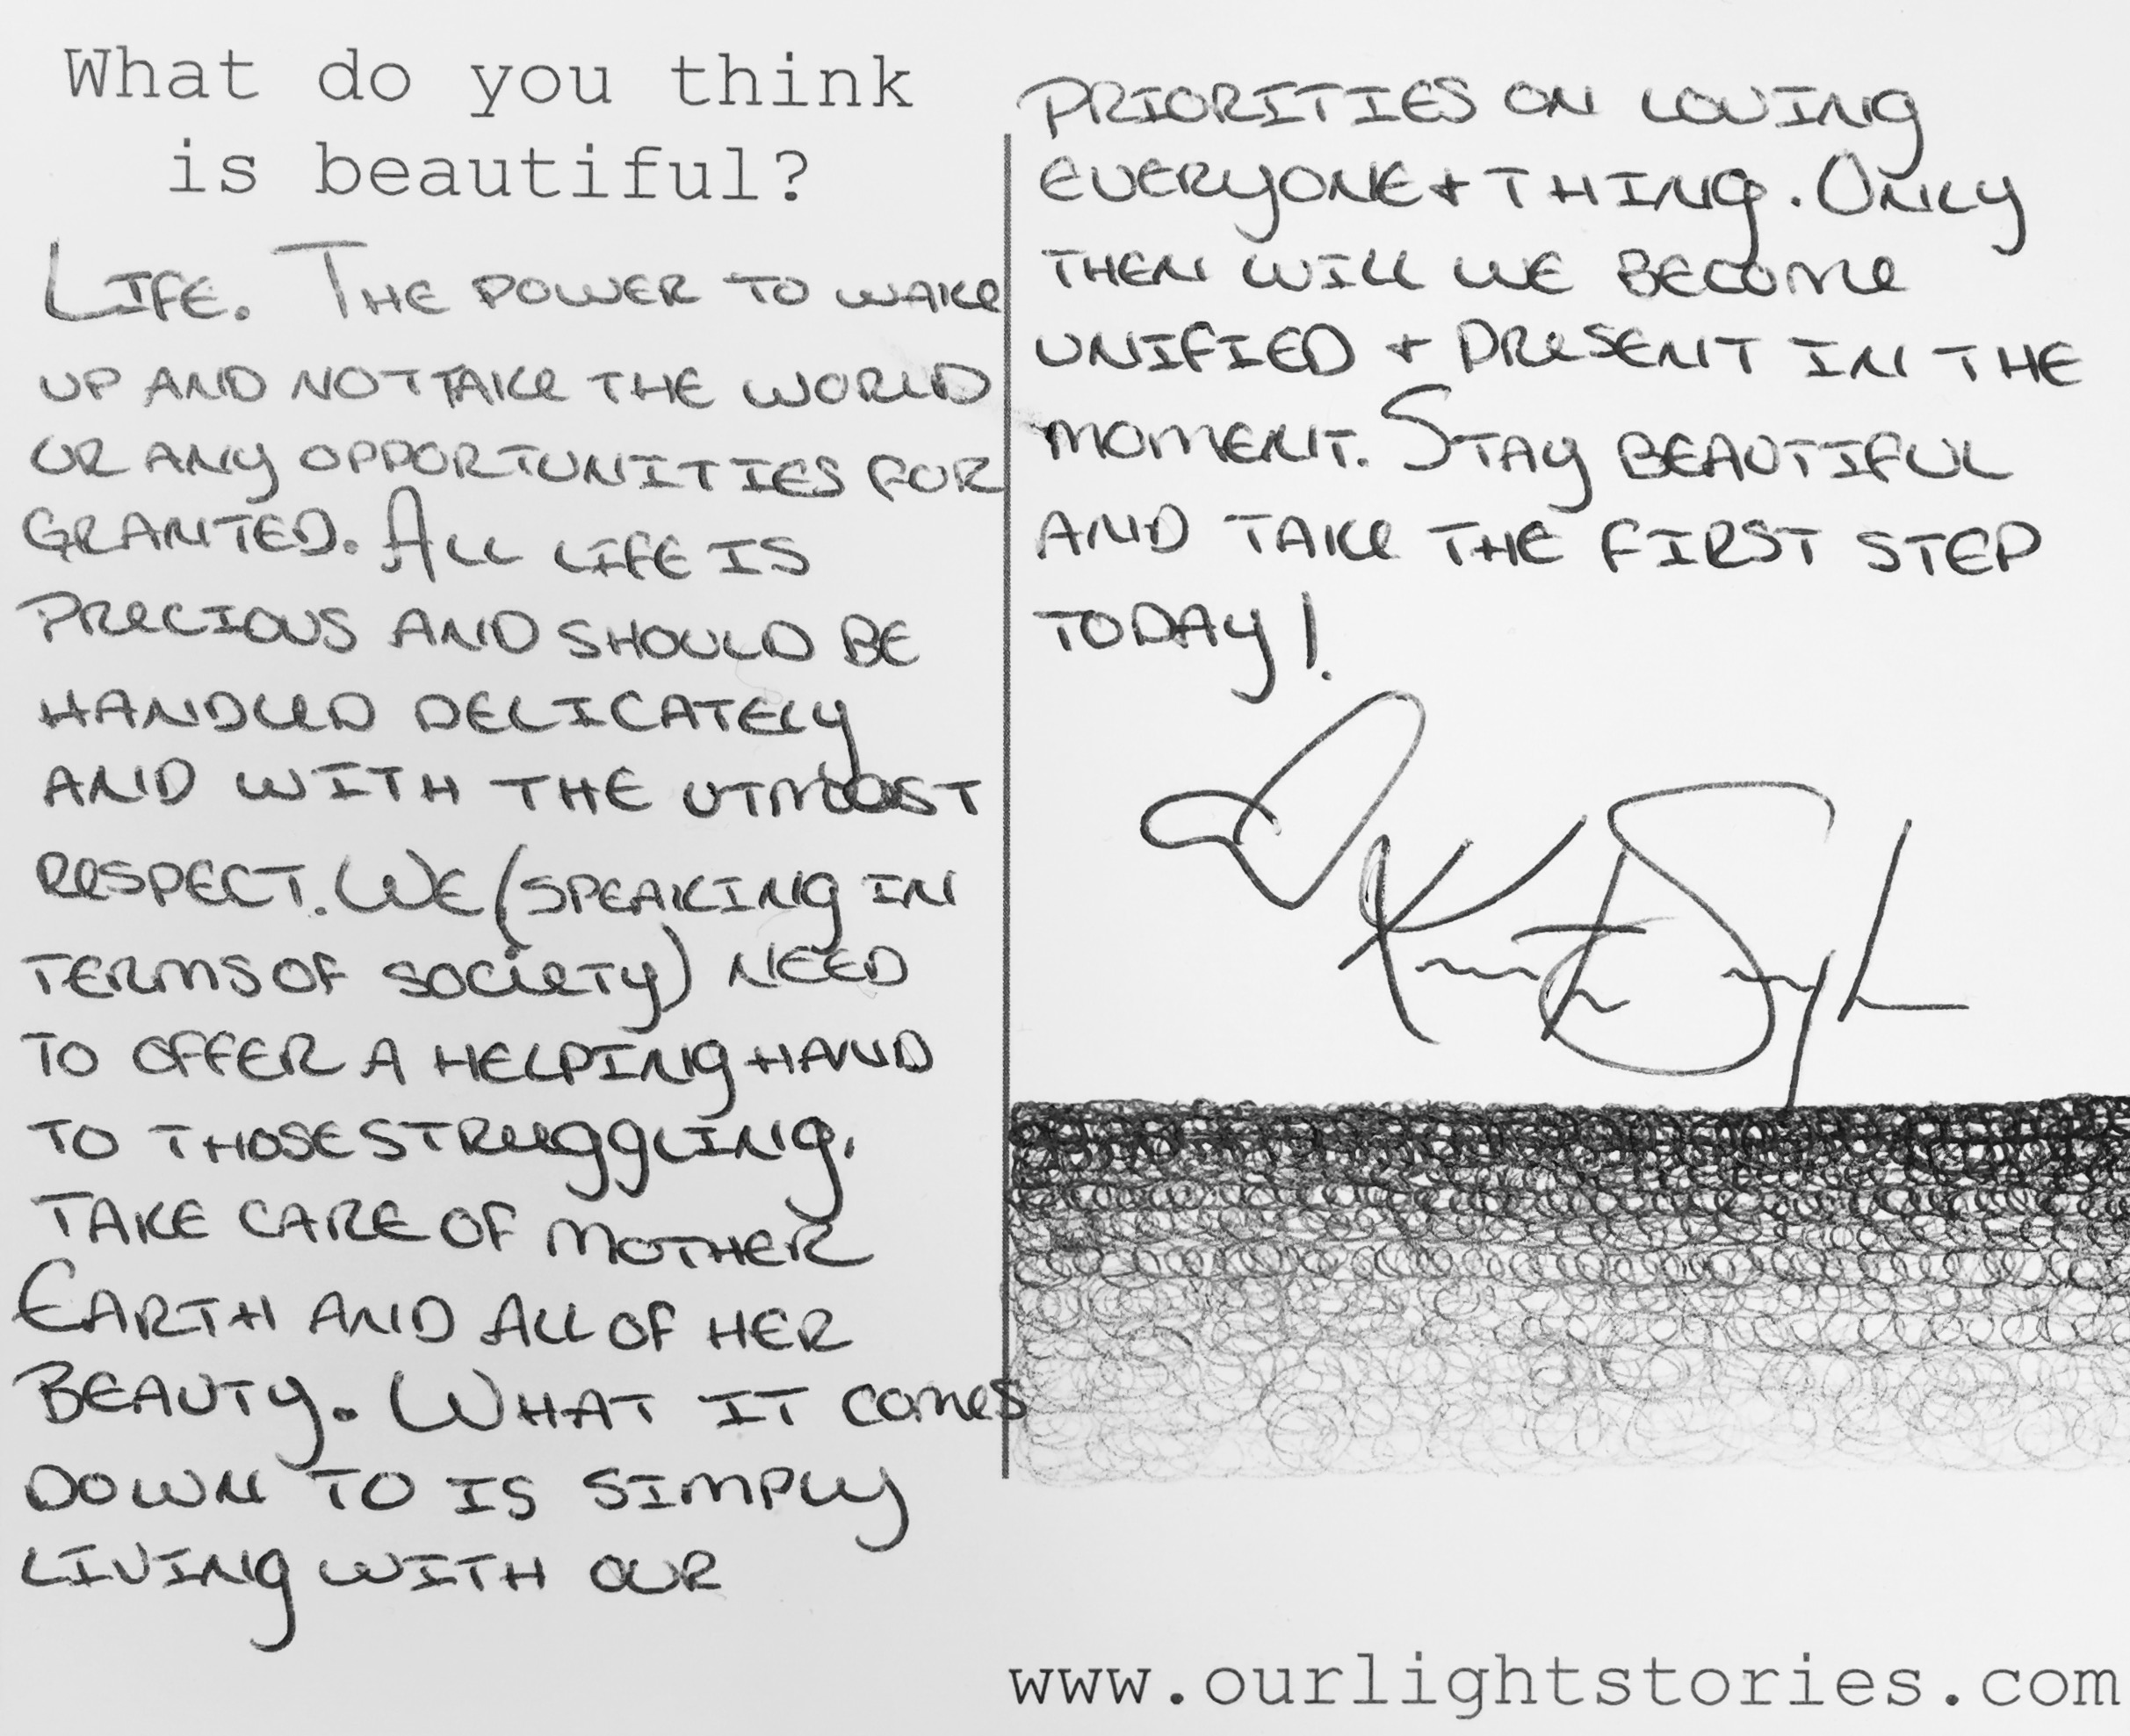 What do you think
is beautiful?
LIFE. THE POWER TO WAKE
UP AND NOT TAKE THE WORLD
OR ANY OPPORTUNITIES FOR
GRANTED. ALL LIFE IS
PRECIOUS AND SHOULD BE
HANDLED DELICATELY
AND WITH THE UTMOST
RESPECT. WE (SPEAKING IN
TERMS OF SOCIETY) NEED
TO OFFER A HELPING HAND
TO THOSE STRUGGLING.
TAKE CARE OF MOTHER
EARTH AND ALL OF HER
BEAUTY. WHAT IT COMES
DOWN TO IS SIMPLY
LIVING WITH OUR
PRIORITIES ON LOVING
EVERYONE + THING. ONLY
THEN WILL WE BECOME
UNIFIED + PRESENT IN THE
MOMENT. STAY BEAUTIFUL
AND TAKE THE FIRST STEP
TODAY!
www.ourlightstories.com